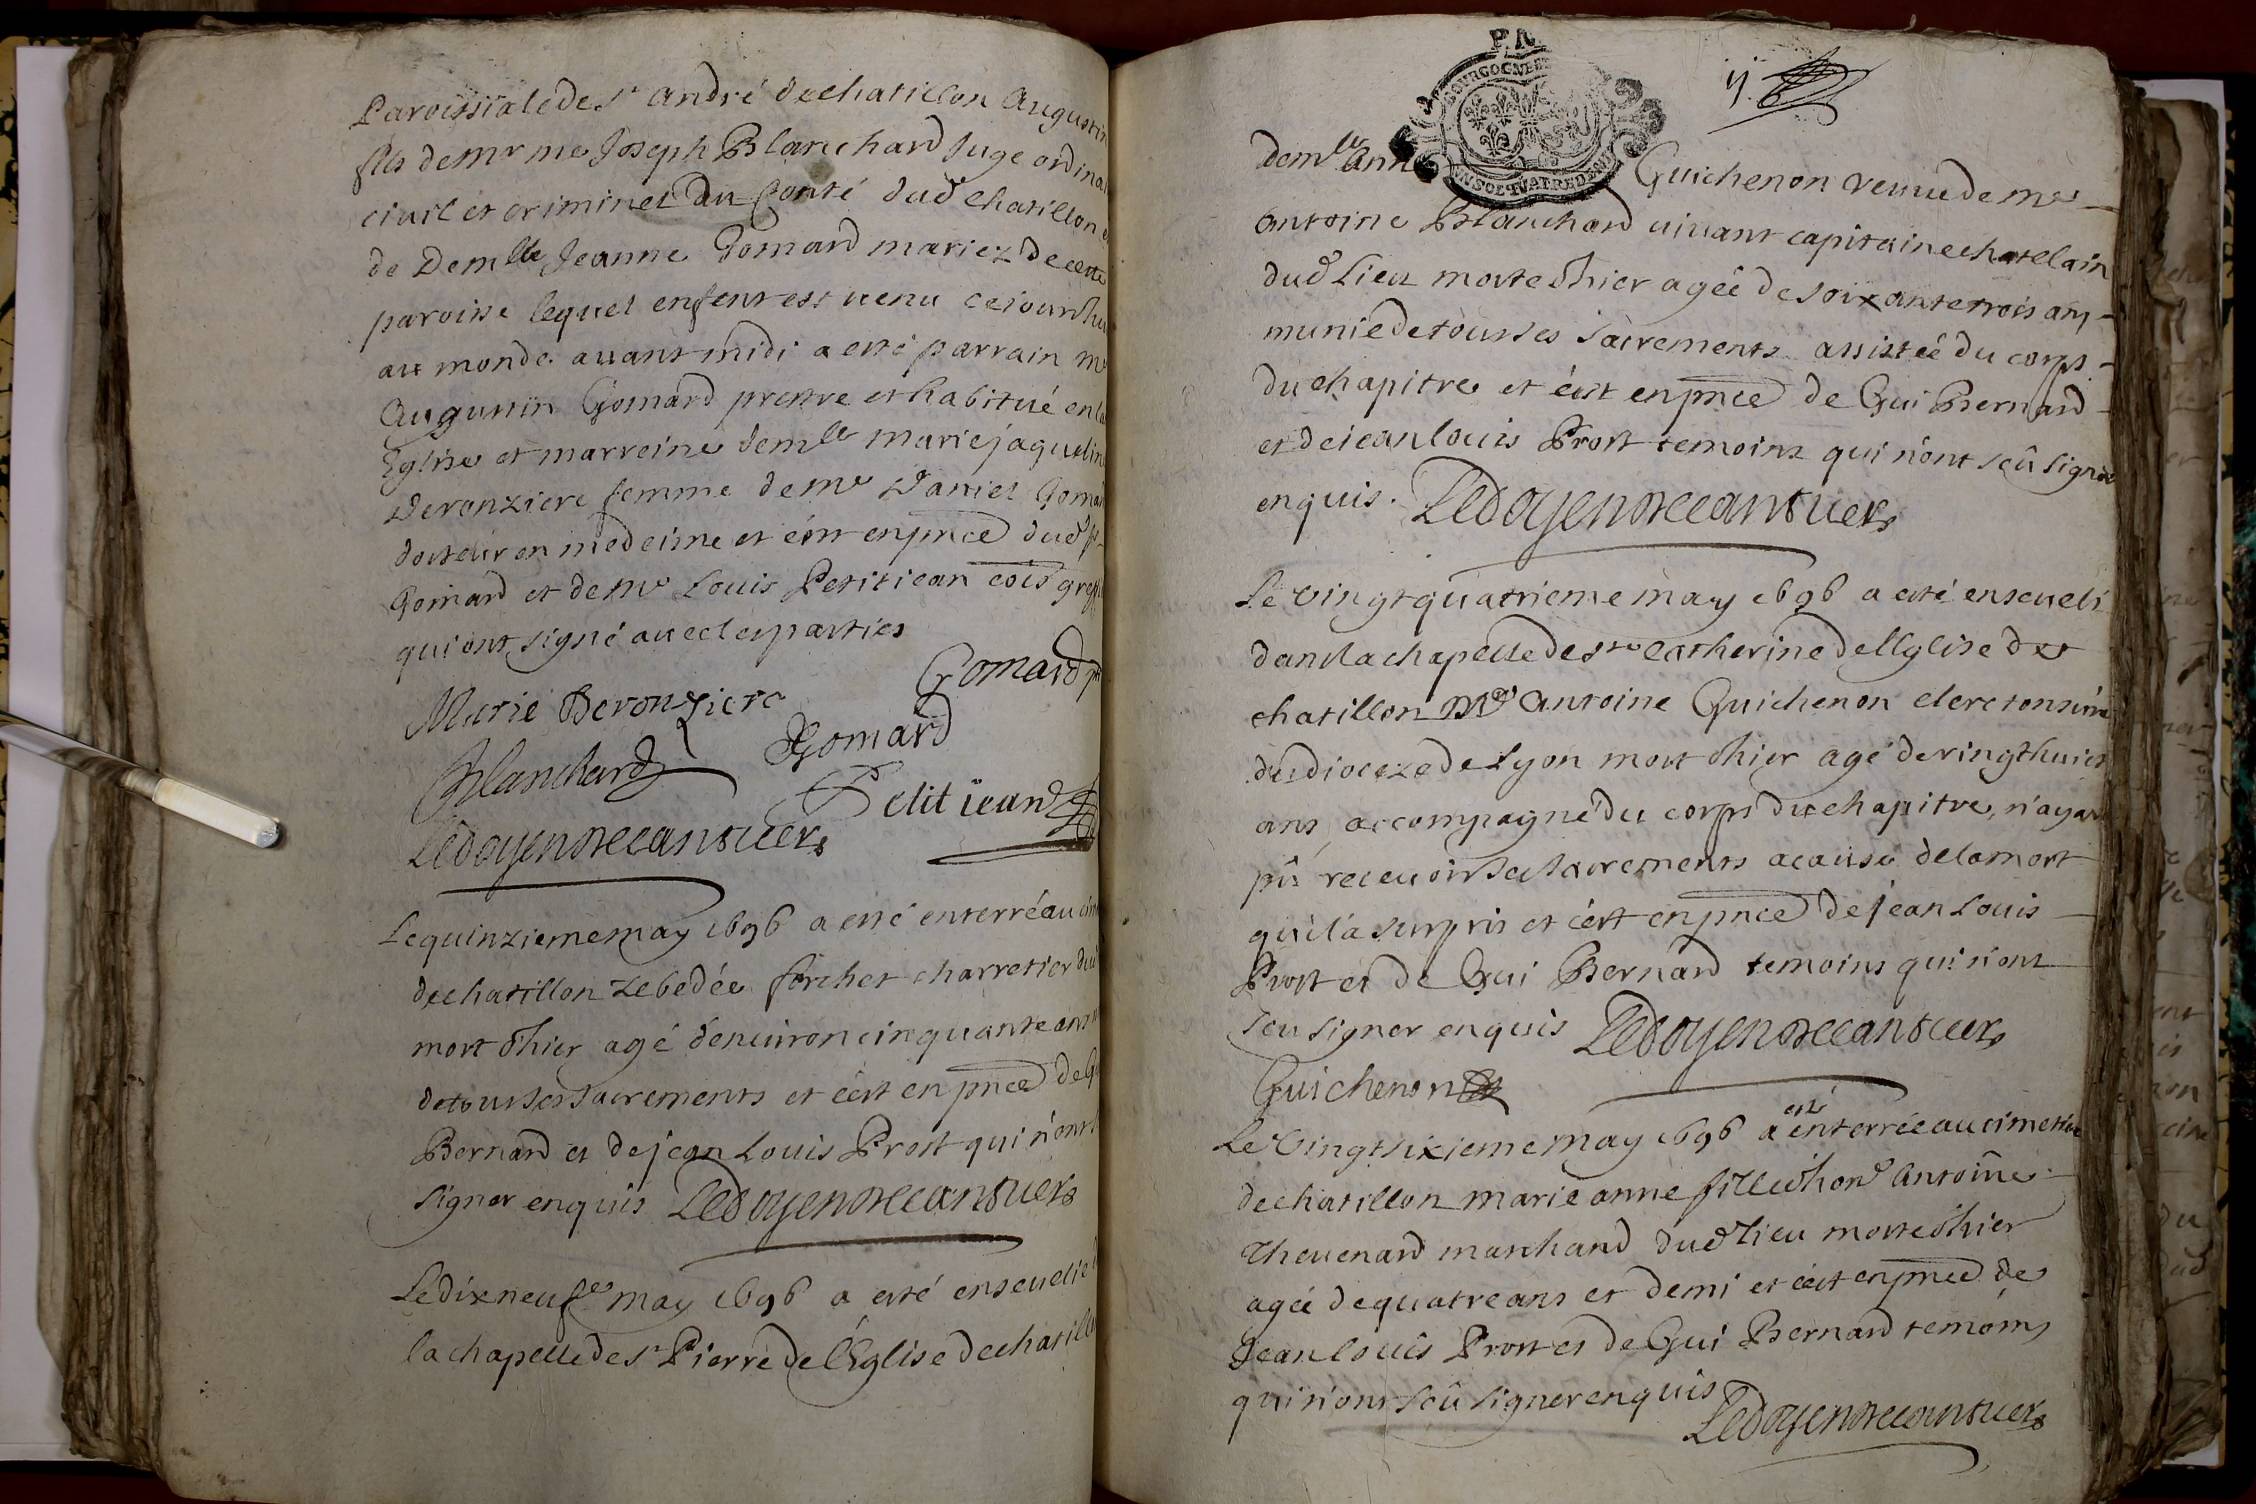 Paroissiale de st andré de chatillon Augustin
fils de mr me Joseph Blanchard Juge ordinai
civil et criminel du Conté dud chatillon et
de Demlle Jeanne Gomard mariez de cette
paroisse lequel enfent est venu ce iourdhu
au monde avant midi a esté parrain mr
Augustin Gomard prestre et habitué en la
Eglise et marreine demlle marie jaqueline
Deronziere femme de mr Daniel Gomar
docteur en medecine et c'est en pnce dud sr
Gomard et de mr Louis Petitiean cois greff
qui ont signé avec les parties
Gomard ptre
Marie Deronziere
Gomard
Blanchard
Petit iean
Ledoyen
Le quinzieme may 1696 a esté enterré au cim
de chatillon zebedée forchet charretier dud
mort d'hier agé d'environ cinquante ans m
de tous ses sacrements et c'est en pnce de G
Bernard et de jean Louis Prost qui n'ont s
signer enquis Ledoyen
Le dixneufe may 1696 a esté ensevelie d
la chapelle de st Pierre de l'Eglise de chatillo
P.R.
BOURGOGNE
UN SOL QUATRE DEN
demlle Ann Guichenon veuve de mre
Antoine Blanchard vivant capitaine chatelain
dud Lieu morte d'hier agêe de soixante trois ans
munie de tous ses sacrements assistée du corps
du chapitre et c'est en pnce de Gui Bernard
et de iean louis Prost temoins qui n'ont sçû signer
enquis. Ledoyen
Le vingt quatrieme may 1696 a esté enseveli
dans la chapelle de ste Catherine de l'Eglise de
chatillon Mre Antoine Guichenon clerc tonsuré
du dioceze de Lyon mort d'hier agé de vingt huict
ans accompagné du corps du chapitre, n'ayant
pû recevoir ses sacrements a cause de la mort
qui l'a surpris et c'est en pnce de jean Louis
Prost et de Gui Bernard temoins qui n'ont
sceu signer enquis Ledoyen
Guichenon
Le vingt sixieme may 1696 a esté enterrée au cimetiere
de chatillon marie anne fille d'hond Antoine
Thevenard marchand dud lieu morte d'hier
agée de quatre ans et demi et c'est en pnce de
Jean Louis Prost et de Gui Bernard temoins
qui n'ont sçû signer enquis
Ledoyen